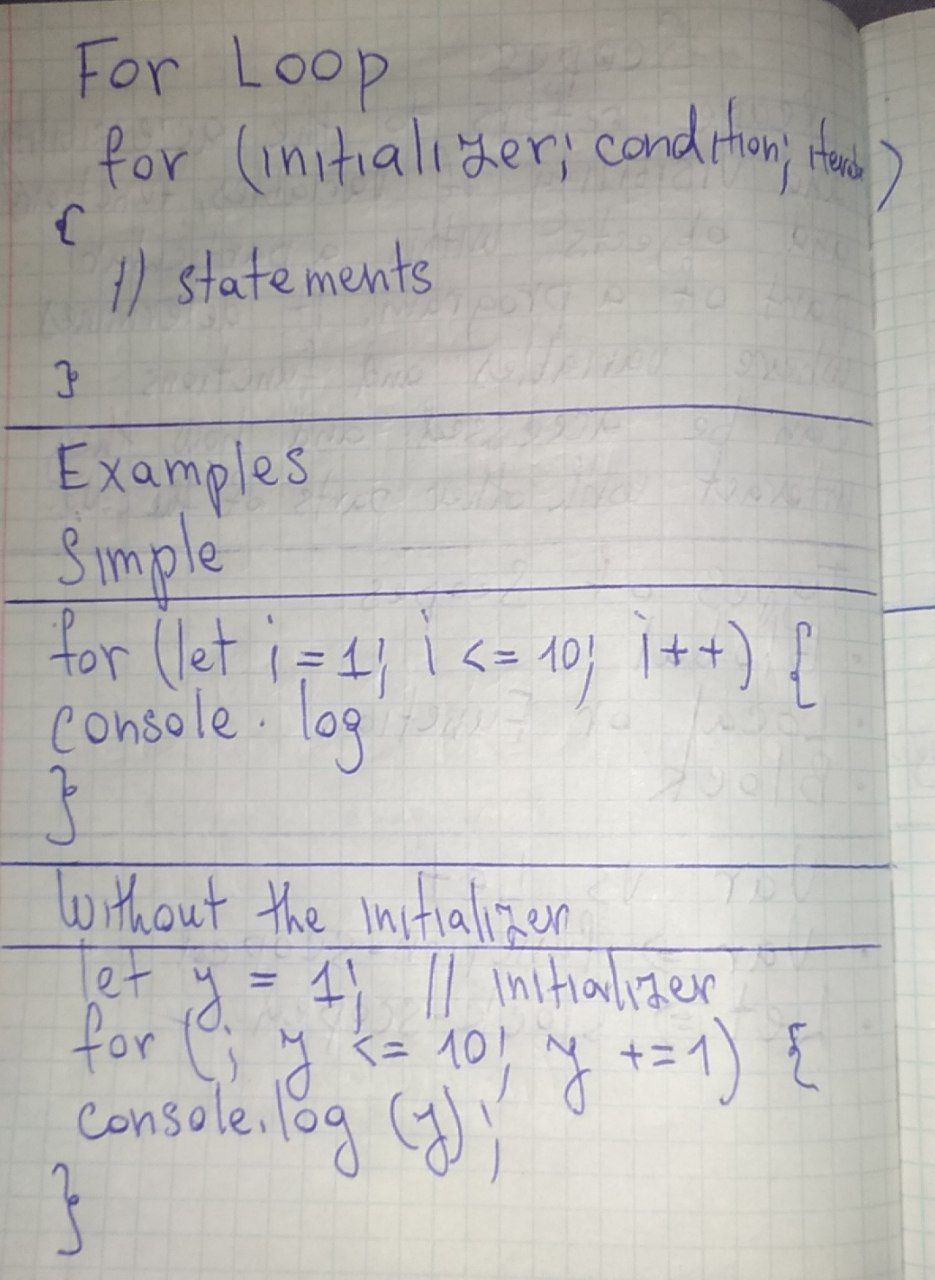 For Loop
for (initializer; condition; iterator)
{
// statements
}
Examples
Simple
for (let i = 1; i <= 10; i++) {
console. log
}
Without the initializer
let y = 1; // initializer
for (; y <= 10; y +=1) {
console.log (y);
}